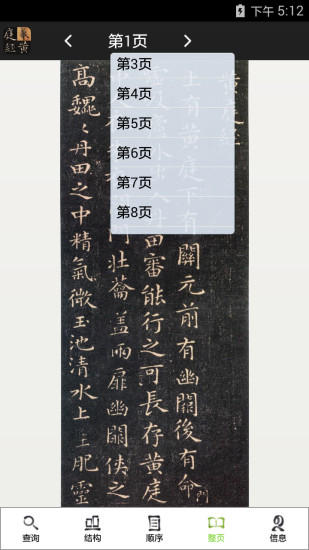 下午 5:12
第1页
第3页
第4页
第5页
第6页
第7页
第8页
黄庭經
上有黄庭下有關元前有幽闕後有命門
入丹田審能行之可長存黄庭
門壯蘥蓋兩扉幽闕俠之
高巍〻丹田之中精氣微玉池清水上生肥靈
查询
结构
顺序
整页
信息